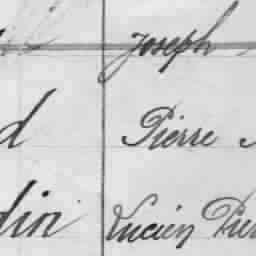 Joseph
d Pierre
din Lucien Pier